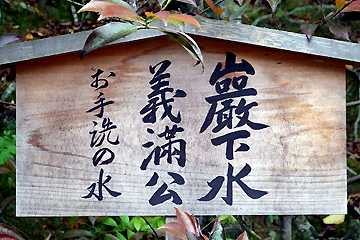 巌下水
義満公
お手洗の水